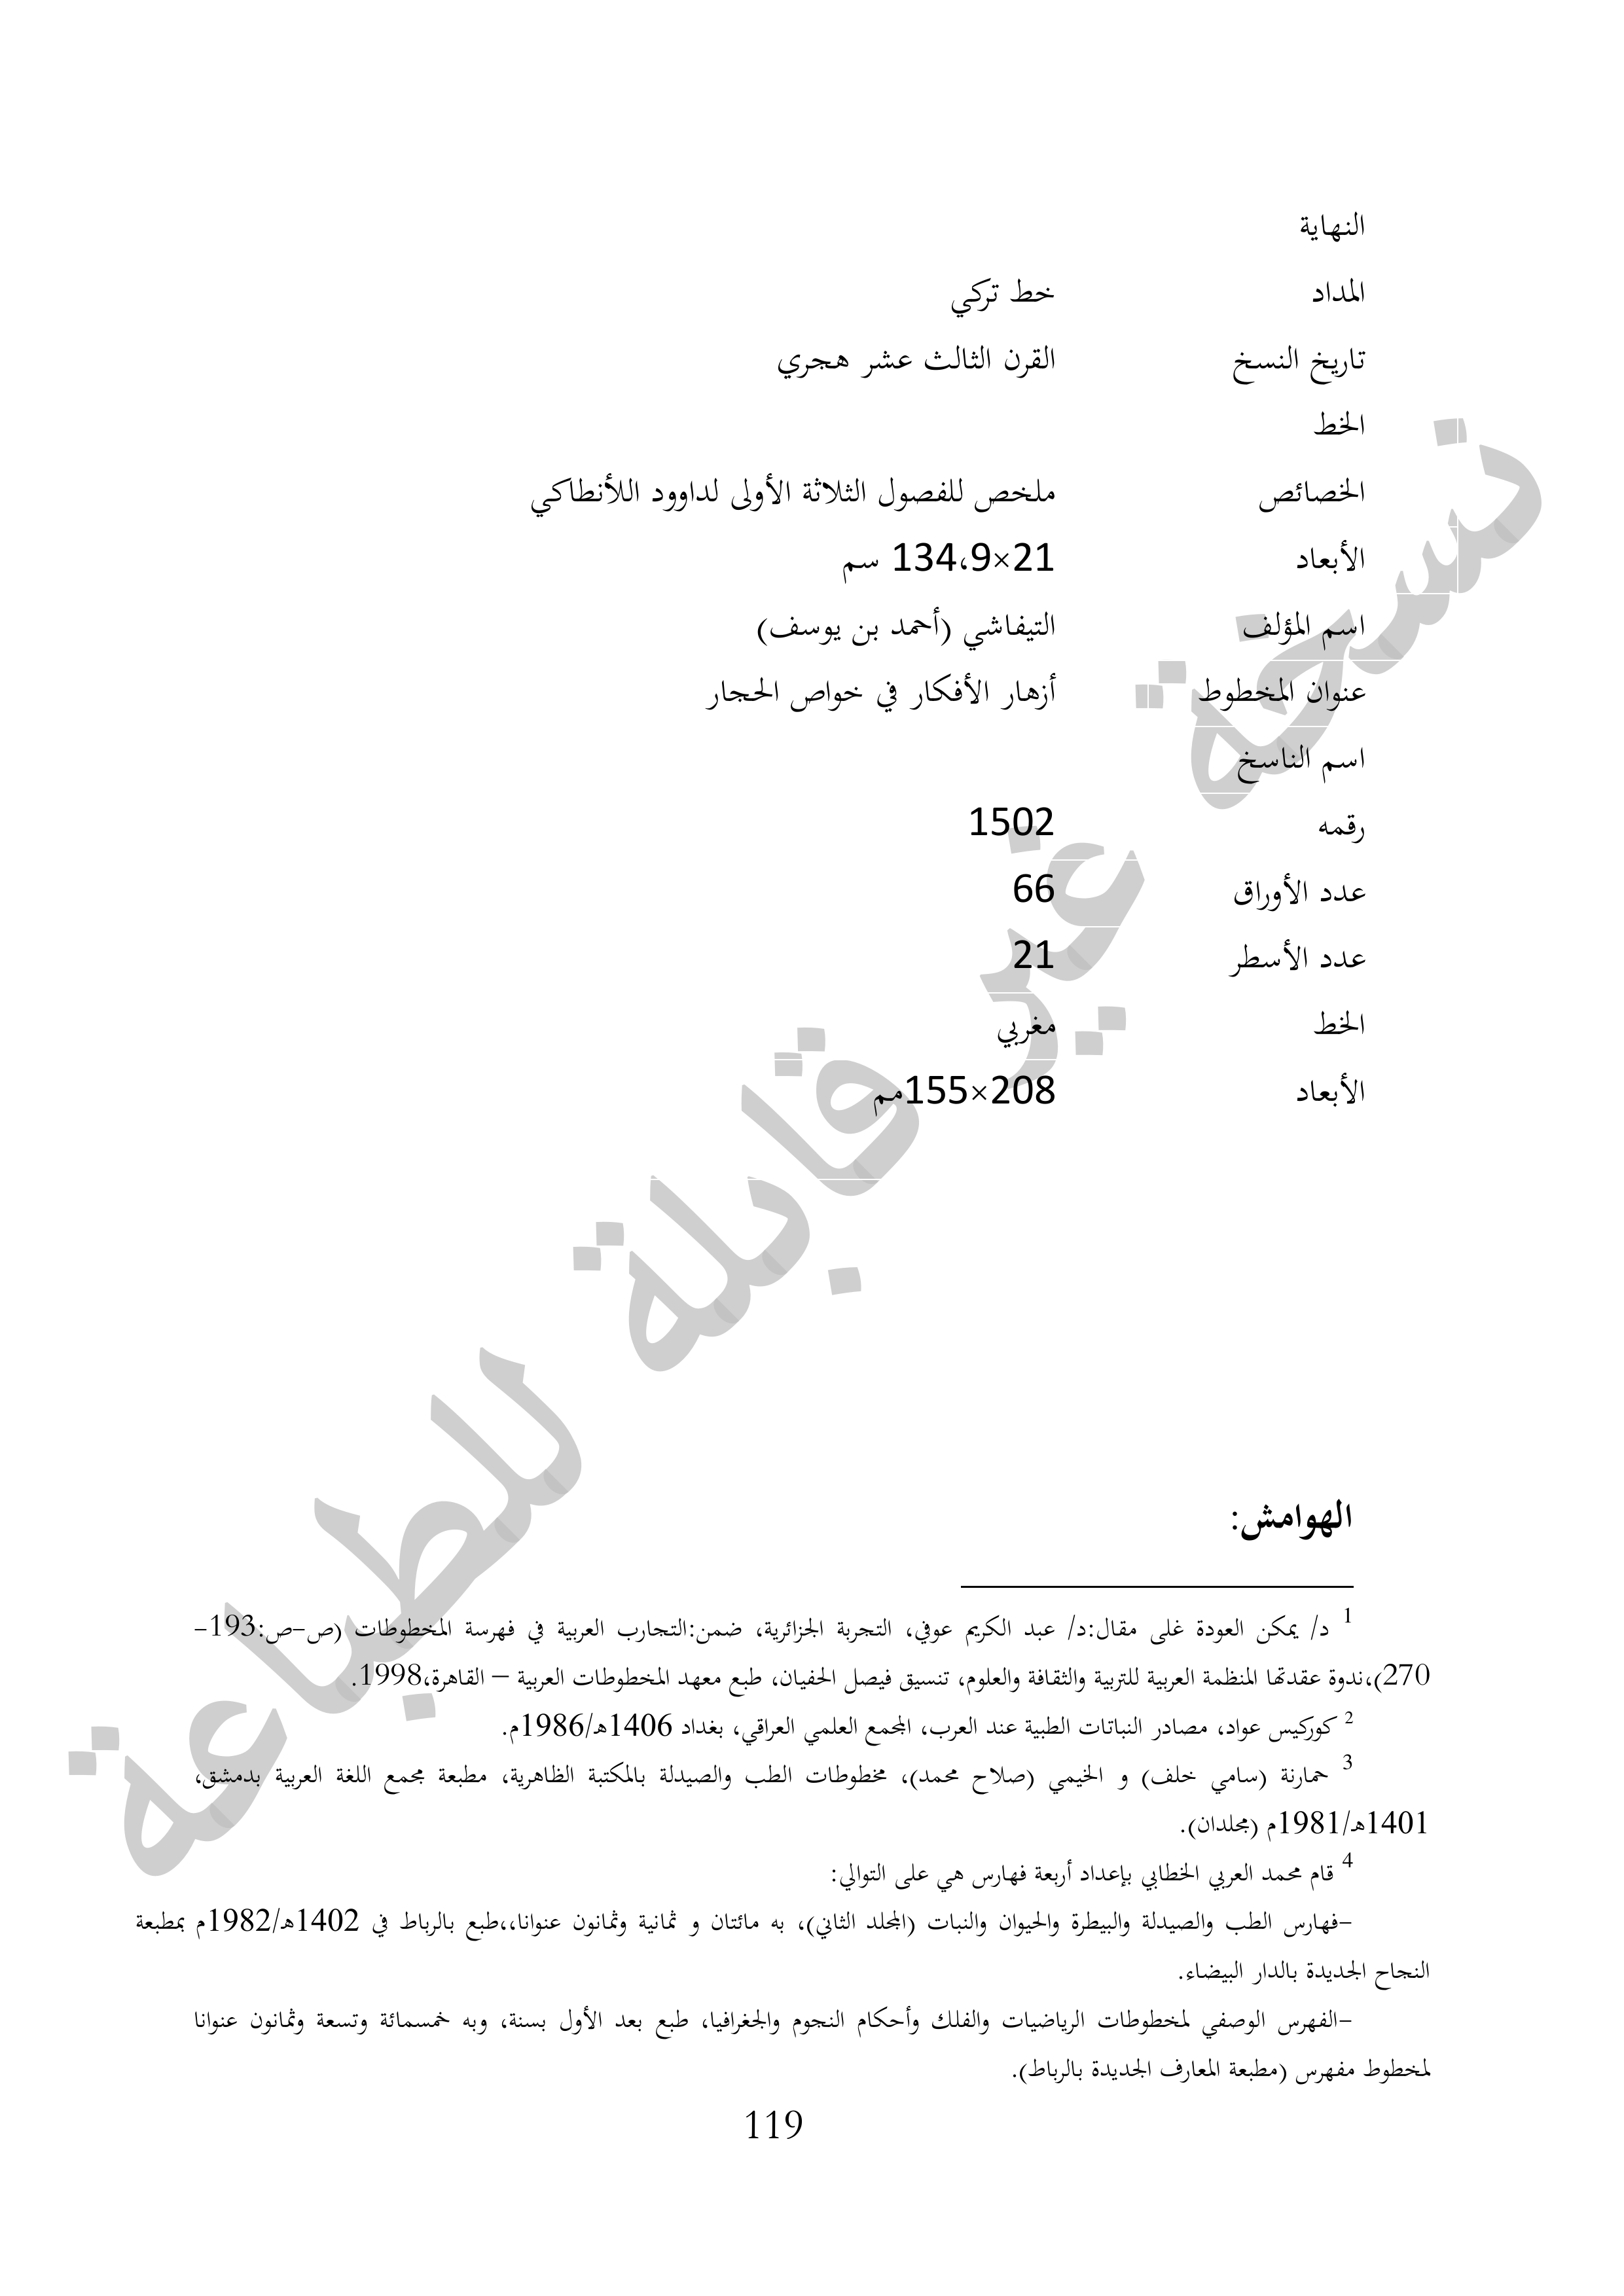 النهاية
المداد خط تركي
تاريخ النسخ القرن الثالث عشر هجري
الخط
الخصائص ملخص للفصول الثلاثة الأولى لداوود اللأنطاكي
الأبعاد 21×134،9 سم
اسم المؤلف التيفاشي (أحمد بن يوسف)
عنوان المخطوط أزهار الأفكار في خواص الحجار
اسم الناسخ
رقمه 1502
عدد الأوراق 66
عدد الأسطر 21
الخط مغربي
الأبعاد 208×155مم
نسخة غير قابلة للطباعة
الهوامش:
1 د/ يمكن العودة غلى مقال:د/ عبد الكريم عوفي، التجربة الجزائرية، ضمن:التجارب العربية في فهرسة المخطوطات (ص-ص:193-
270)،ندوة عقدتها المنظمة العربية للتربية والثقافة والعلوم، تنسيق فيصل الحفيان، طبع معهد المخطوطات العربية – القاهرة،1998.
2 كوركيس عواد، مصادر النباتات الطبية عند العرب، المجمع العلمي العراقي، بغداد 1406هـ/1986م.
3 حمارنة (سامي خلف) و الخيمي (صلاح محمد)، مخطوطات الطب والصيدلة بالمكتبة الظاهرية، مطبعة مجمع اللغة العربية بدمشق،
1401هـ/1981م (مجلدان).
4 قام محمد العربي الخطابي بإعداد أربعة فهارس هي على التوالي:
-فهارس الطب والصيدلة والبيطرة والحيوان والنبات (المجلد الثاني)، به مائتان و ثمانية وثمانون عنوانا،،طبع بالرباط في 1402هـ/1982م بمطبعة
النجاح الجديدة بالدار البيضاء.
-الفهرس الوصفي لمخطوطات الرياضيات والفلك وأحكام النجوم والجغرافيا، طبع بعد الأول بسنة، وبه خمسمائة وتسعة وثمانون عنوانا
لمخطوط مفهرس (مطبعة المعارف الجديدة بالرباط).
119